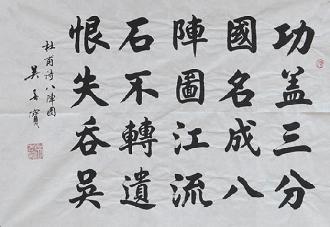 功盖三分
國名成八
陣圖江流
石不轉遺
恨失吞吳
杜甫诗八陣图